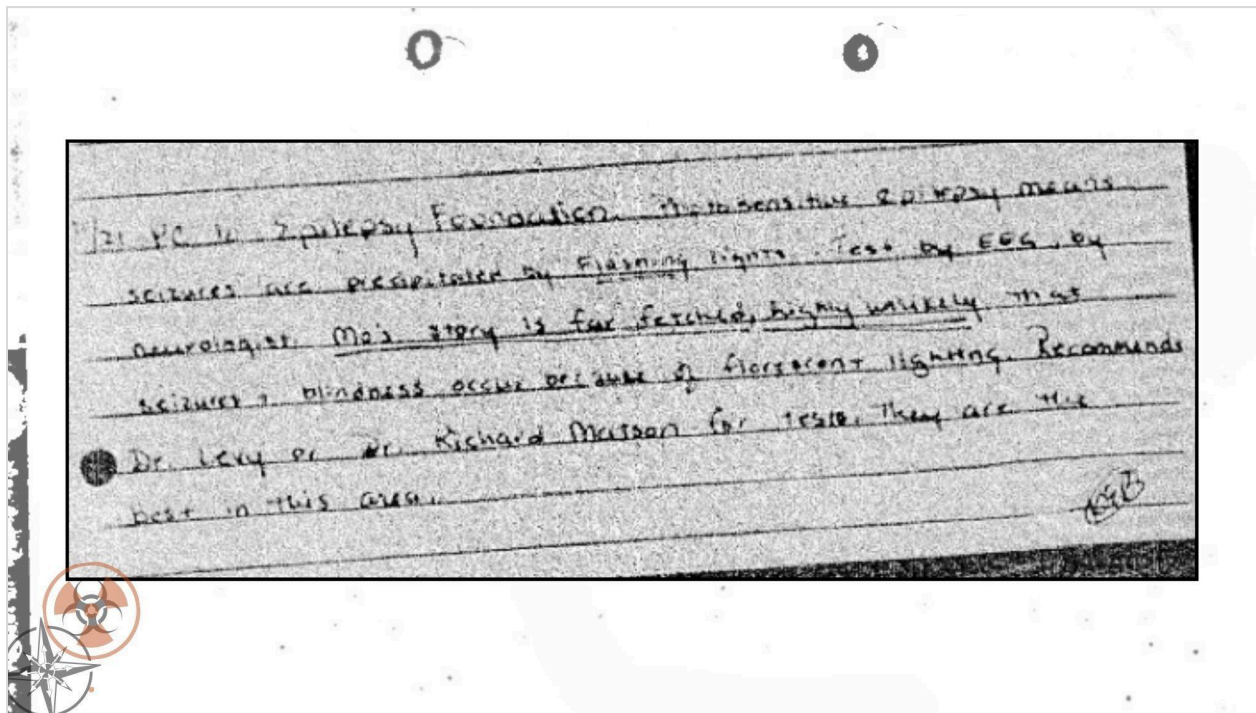 /21 PC to Epilepsy Foundation. Photosensitive epilepsy means
seizures are precipitated by flashing lights. Test by EEG, by
neurologist. Mo's story is far fetched, highly unlikely that
seizures, blindness occur because of florescent lighting. Recommends
Dr. Levy or Dr. Richard Matson for tests. They are the
best in this area.